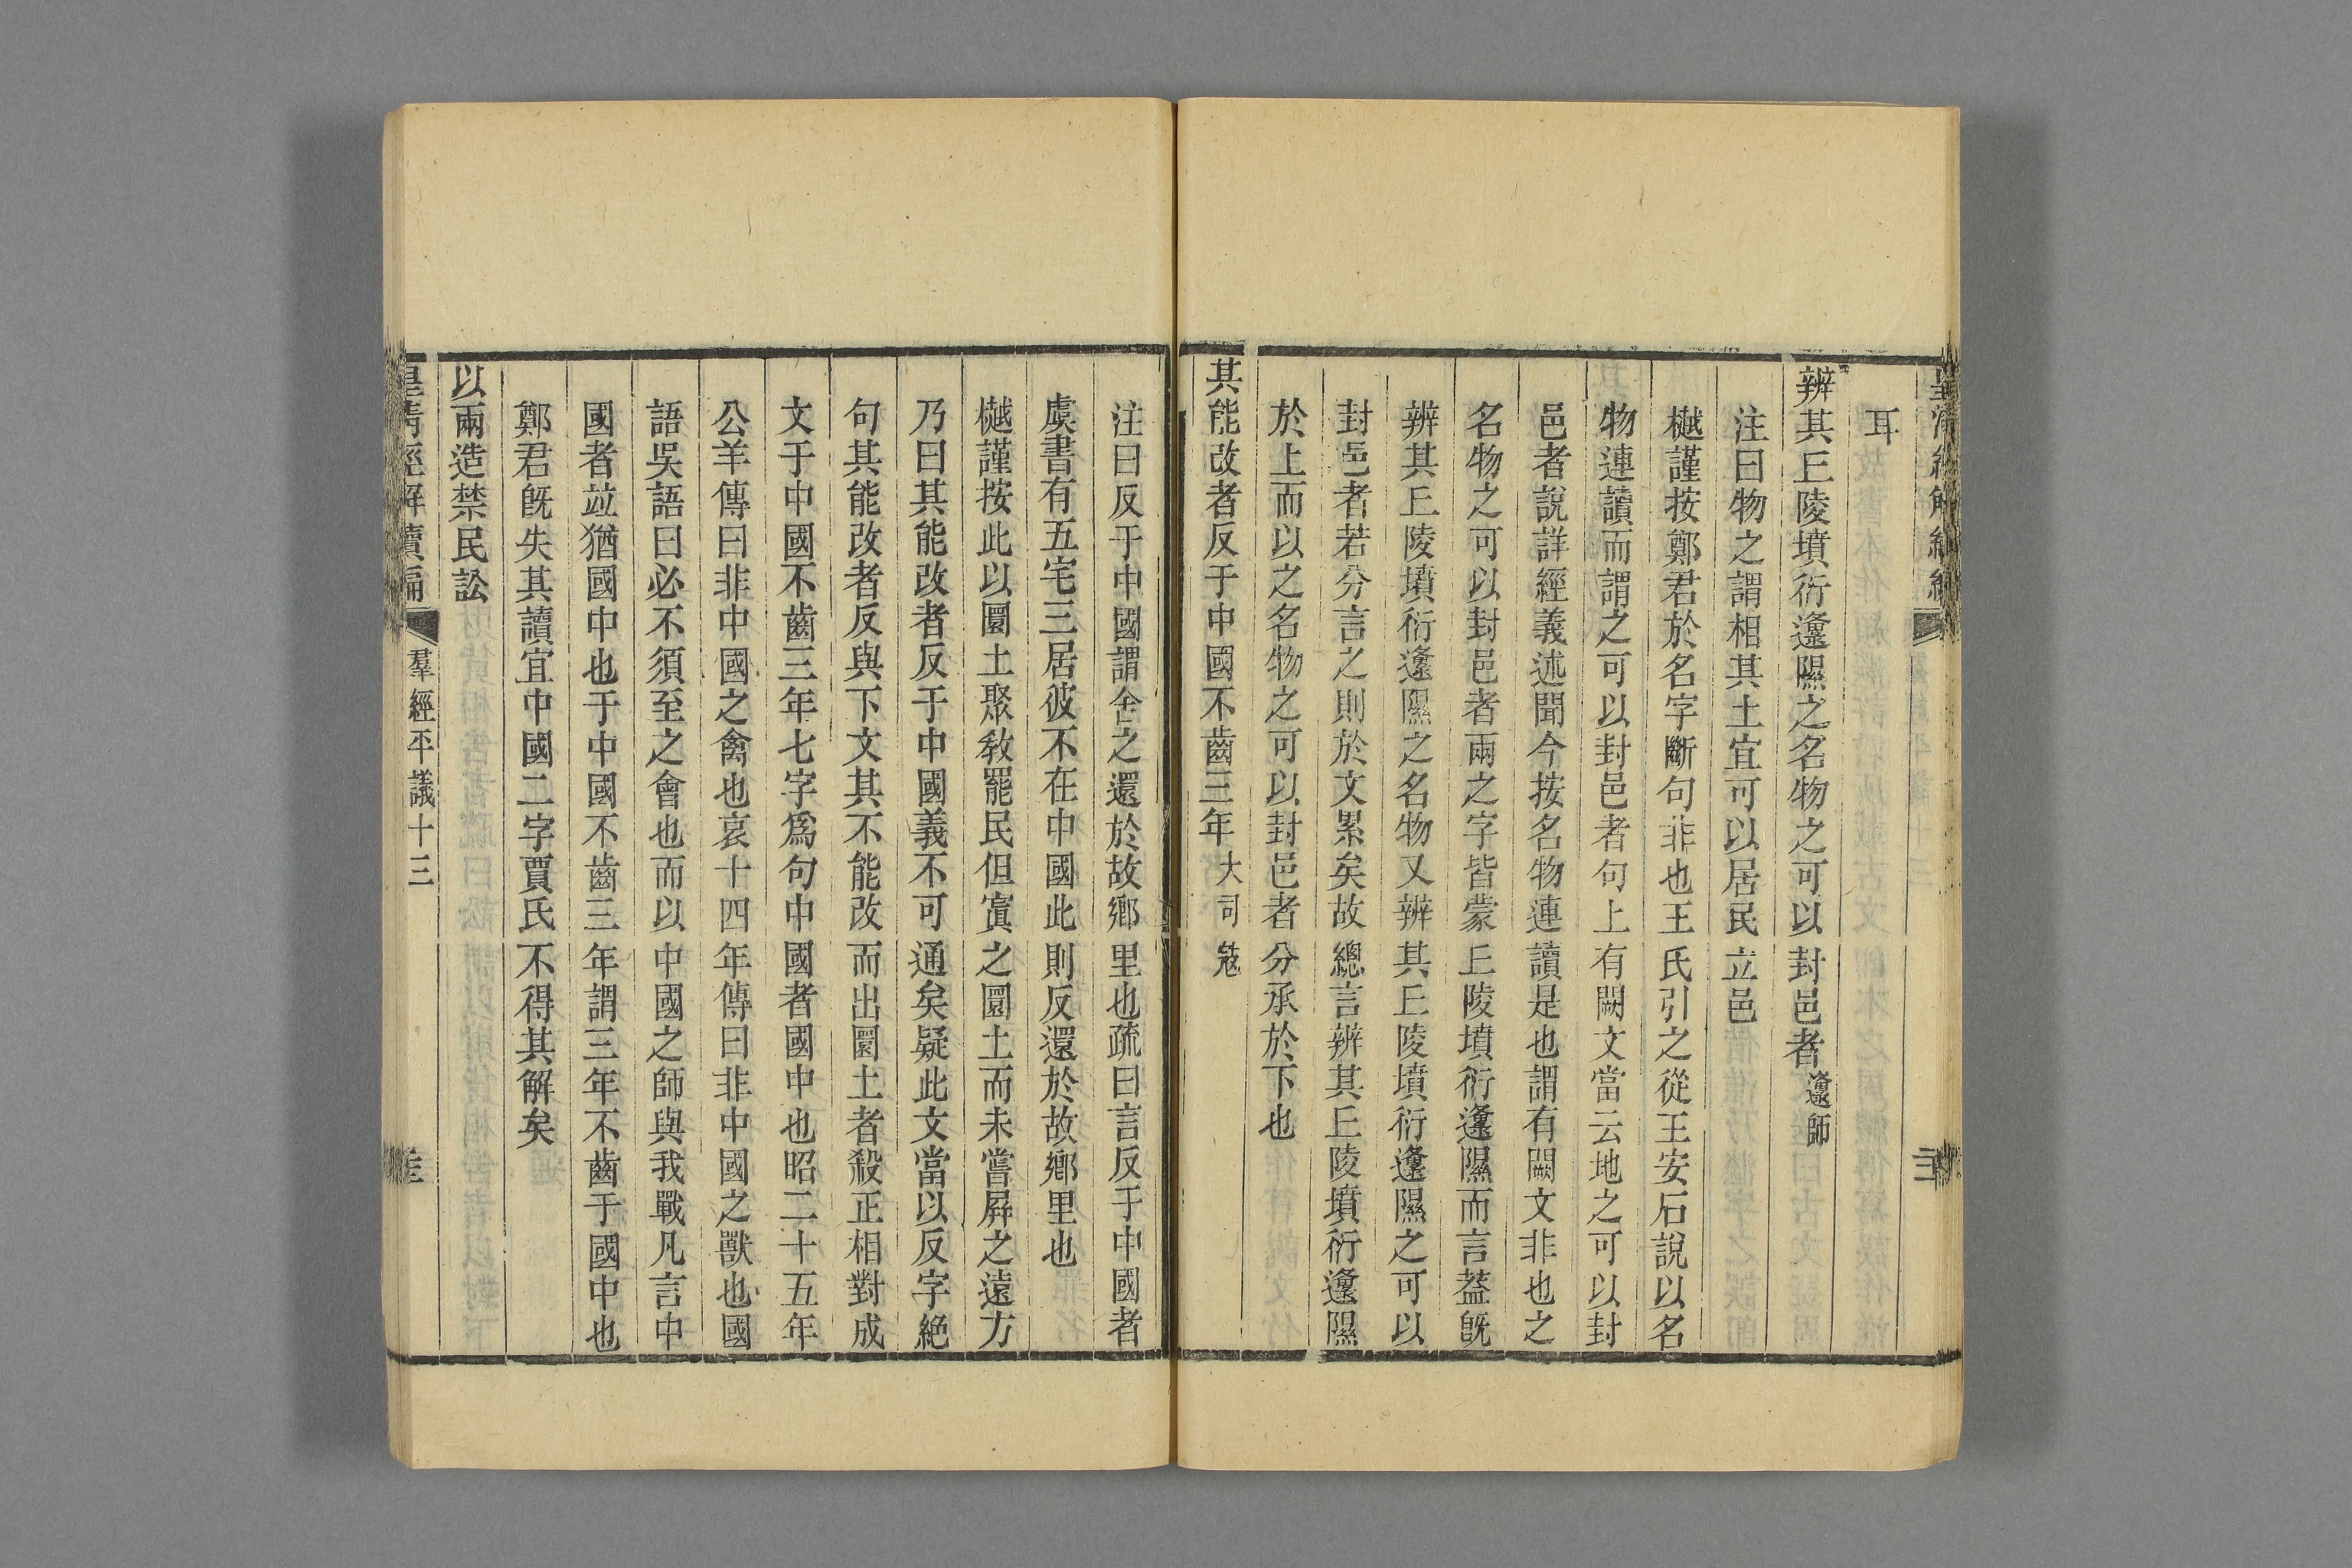 耳
辨其丘陵墳衍邍隰之名物之可以封邑者邍師
注曰物之謂相其土宜可以居民立邑
樾謹按鄭君於名字斷句非也王氏引之從王安石說以名
物連讀而謂之可以封邑者句上有闕文當云地之可以封
邑者說詳經義述聞今按名物連讀是也謂有闕文非也之
名物之可以封邑者兩之字皆蒙丘陵墳衍邍隰而言葢旣
辨其丘陵墳衍邍隰之名物又辨其丘陵墳衍邍隰之可以
封邑者若分言之則於文累矣故總言辨其丘陵墳衍邍隰
於上而以之名物之可以封邑者分承於下也
其能改者反于中國不齒三年大司寇
注曰反于中國謂舍之還於故鄉里也疏曰言反于中國者
虞書有五宅三居彼不在中國此則反還於故鄉里也
樾謹按此以圜土聚敎罷民但寘之圜土而未嘗屛之遠方
乃曰其能改者反于中國義不可通矣疑此文當以反字絶
句其能改者反與下文其不能改而出圜土者殺正相對成
文于中國不齒三年七字爲句中國者國中也昭二十五年
公羊傳曰非中國之禽也哀十四年傳曰非中國之獸也國
語吳語曰必不須至之會也而以中國之師與我戰凡言中
國者竝猶國中也于中國不齒三年謂三年不齒于國中也
鄭君旣失其讀宜中國二字賈氏不得其解矣
以兩造禁民訟
皇清經解續編 羣經平議十三